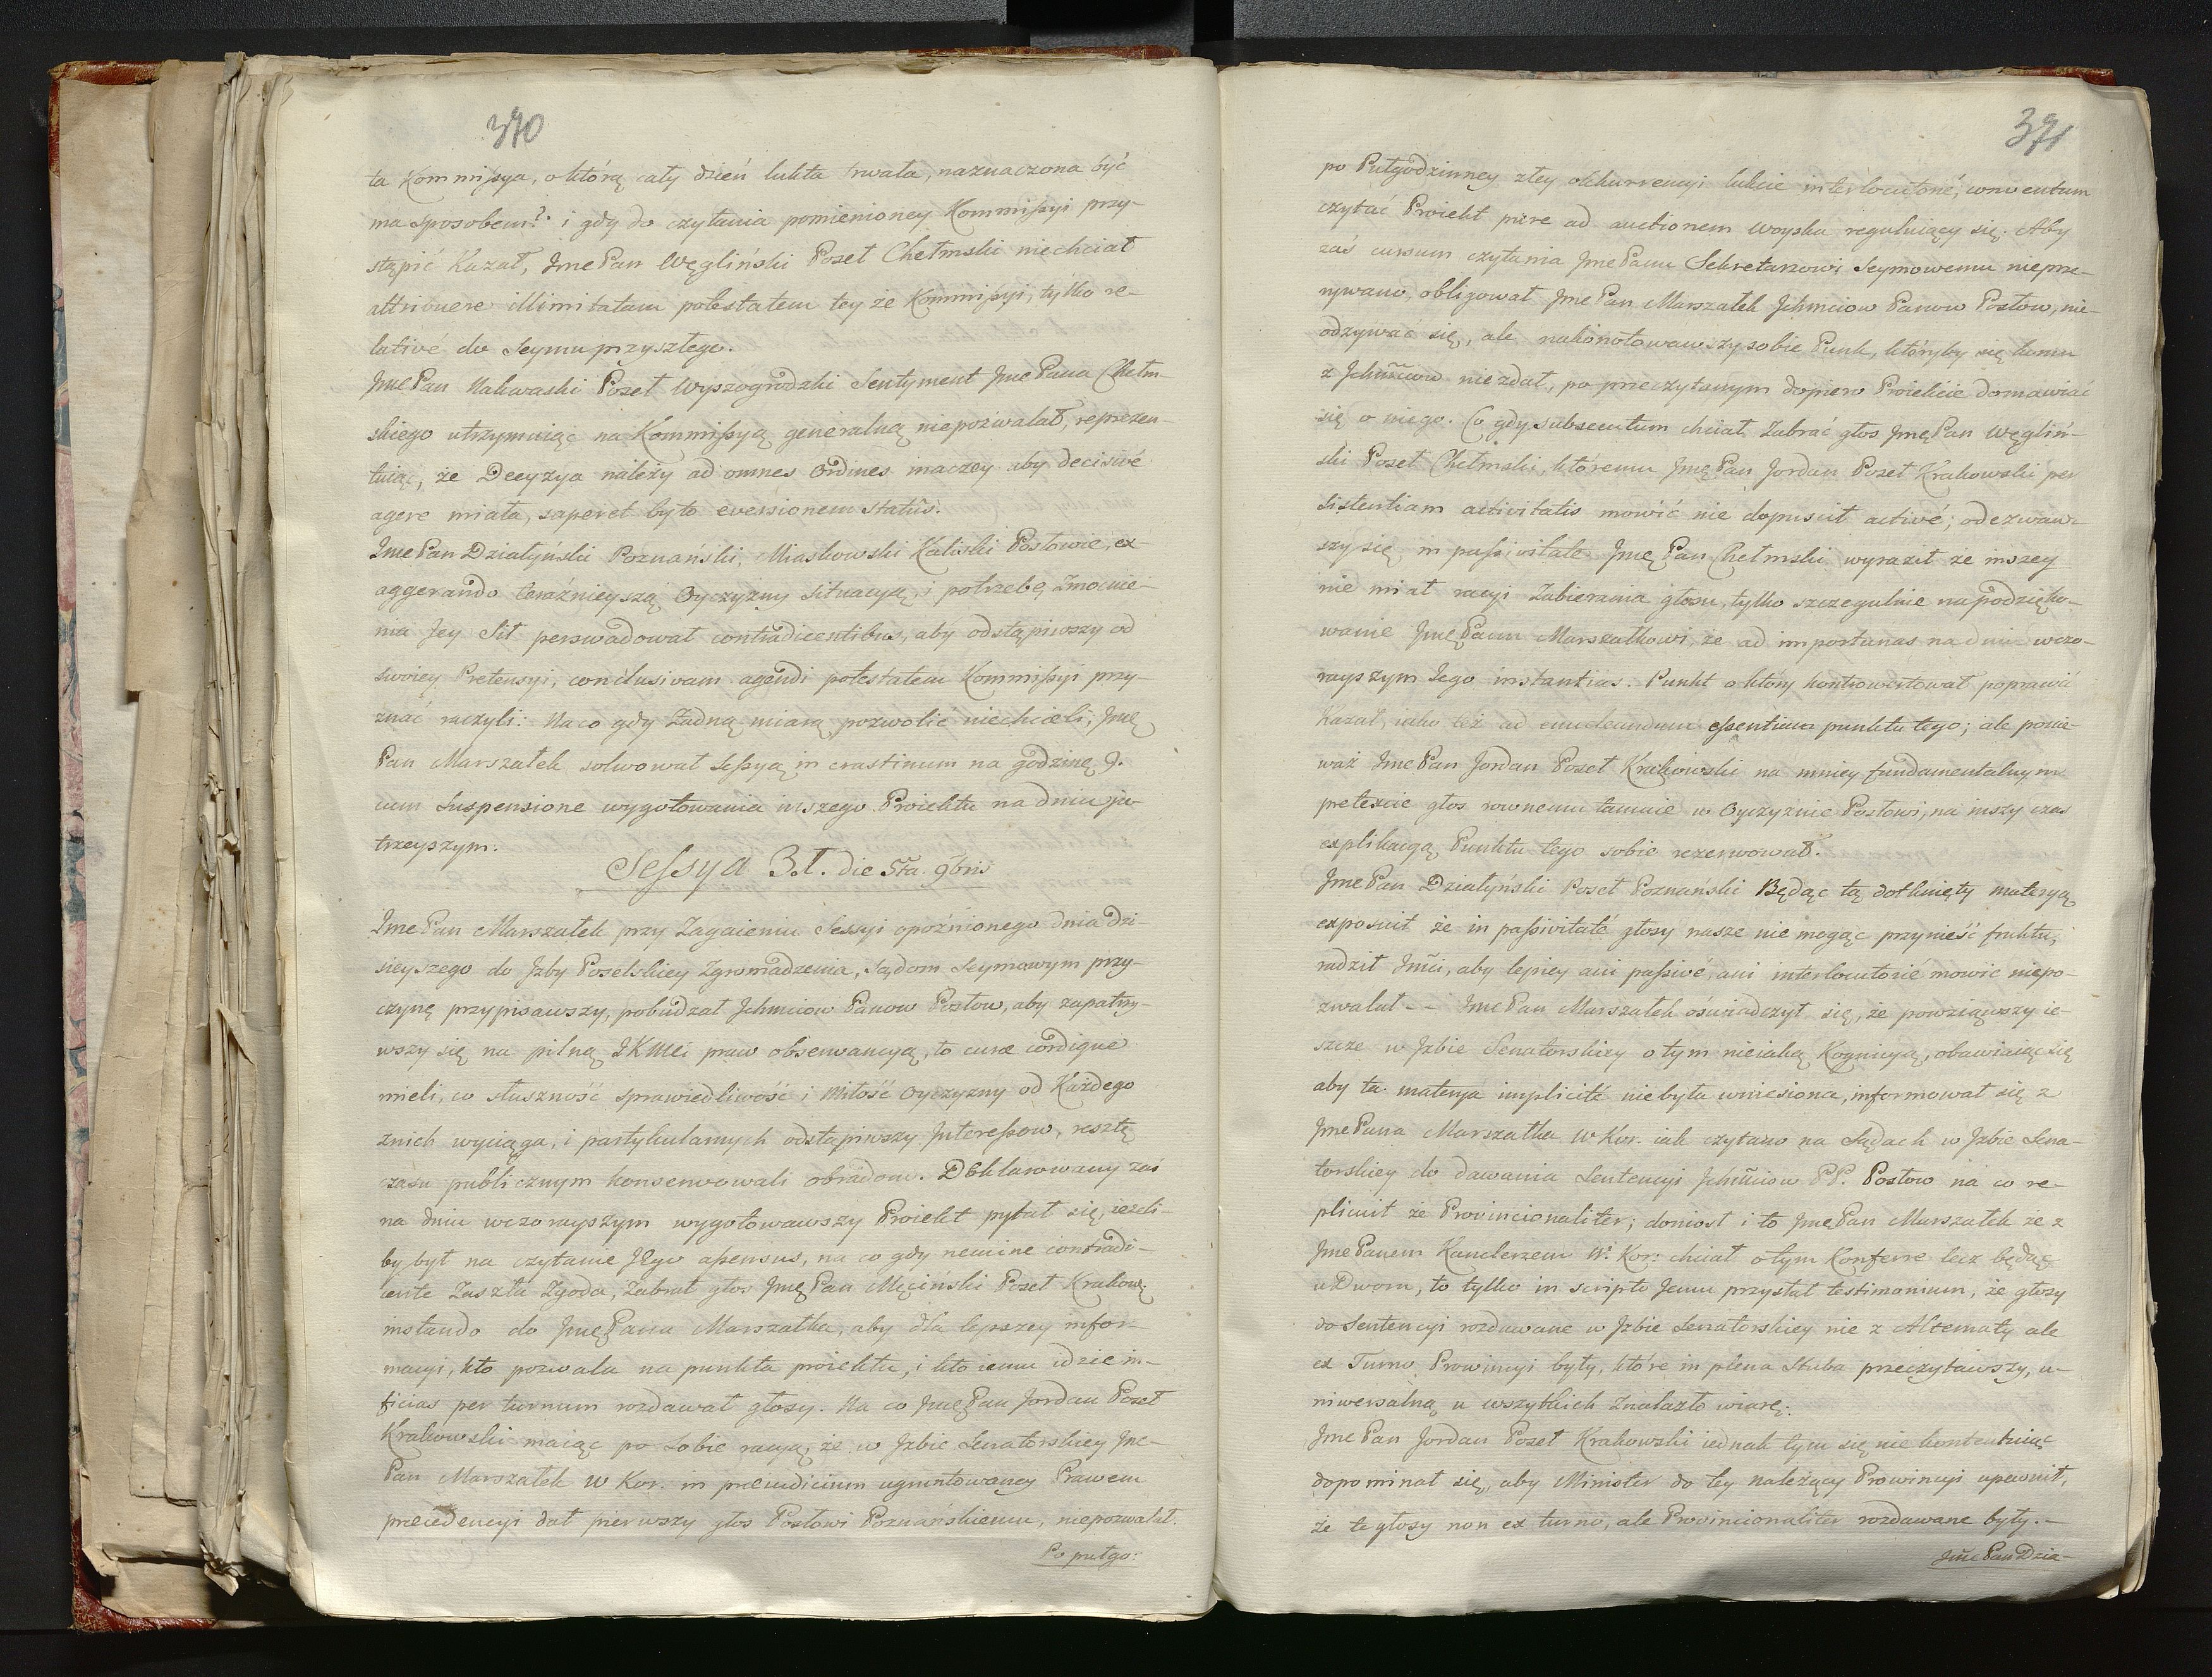 370
ta Kommissya, o którą cały dzień lukta trwała, naznaczona być
ma sposobem? i gdy do czytania pomienioney Kommissyi przy-
stąpić Kazał, Jme Pan Węgliński Poseł Chełmski niechciał
attribuere illimitatam potestatem tey że Kommissyi, tylko re-
lativé do Seymu przyszłego.
Jme Pan Nakwaski Poseł Wyszogrodzki Sentyment Jme Pana Chełm-
skiego utrzymuiąc na Kommissyą generalną niepozwalał, reprezen-
tuiąc, że Decyzya należy ad omnes Ordines inaczey aby decisivé
agere miała, saperet by to eversionem statûs.
Jme Pan Działyński Poznański, Miaskowski Kaliski Posłowie, ex-
aggerando teraźnieyszą Oyczyzny Situacyą, i potrzebę Zmocnie-
nia Jey Sił perswadował contradicentibus, aby odstąpiwszy od
swoiey Pretensyi, conclusivam agendi potestatem Kommissyi przy-
znać raczyli: Na co gdy Żadną miarą pozwolić niechcieli, Jmę
Pan Marszałek solwował Sessyą in crastinum na godzinę 9.
cum Suspensione wygotowania inszego Proiektu na dniu ju-
trzeyszym.
Sessya 3.t. die 5ta. 9bris
Jme Pan Marszałek przy Zagaieniu Sessyi opoźnionego dnia dzi-
sieyszego do Jzby Poselskiey Zgromadzenia, Sądom Seymowym przy-
czynę przypisawszy, pobudzał Jchmciow Panow Posłow, aby zapatrzy-
wszy się na pilną JKMci praw obserwancyą, to curæ cordique
mieli, co słuszność sprawiedliwość i Miłość Oyczyzny od Każdego
znich wyciąga, i partykularnych odstąpiwszy Jnteressow, resztę
czasu publicznym konserwowali obradom. Deklarowany zaś
na dniu wczorayszym wygotowawszy Proiekt pytał się, ieżeli-
by był na czytanie Jego assensus, na co gdy nemine contradi-
cente Zaszła Zgoda, Zabrał głos Jmę Pan Męciński Poseł Krakow:
instando do Jmę Pana Marszałka, aby dla lepszey infor-
macyi, kto pozwala na punkta proiektu, i kto iemu idzie in-
ficias per turnum rozdawał głosy. Na co Jmę Pan Jordan Poseł
Krakowski maiąc po Sobie racyą, że w Jzbie Senatorskiey Jme
Pan Marszałek W Kor. in præiudicium ugruntowaney Prawem
precedencyi dał pierwszy głos Posłowi Poznańskiemu, niepozwalał.
Po pułgo:
371
po Pułgodzinney złey okkurrencyi lukcie interlocutorié, conventum
czytać Proiekt pure ad auctionem woyska reguluiący się. Aby
zaś cursum czytania Jme Panu Sekretarzowi Seymowemu nieprze-
rywano, obligował Jme Pan Marszałek Jchmciow Panow Posłow, nie-
odzywać się, ale nakonotowawszy sobie Punk, któryby się komu
z Jchmciow niezdał, po przeczytanym dopiero Proiekcie domawiać
się o niego. Co gdy subsecutum chciał Zabrać głos Jmę Pan Węgliń-
ski Poseł Chełmski, któremu Jmę Pan Jordan Poseł Krakowski per
sistentiam activitatis mowić nie dopuscił activé; odezwaw-
szy się in passivitate Jmę Pan Chełmski wyraził że inszey
nie miał racyi Zabierania głosu, tylko szczegulnie na podzięko-
wanie Jmę Panu Marszałkowi, że ad importunas na dniu wczo-
rayszym Jego instantias. Punkt o który kontrowertował poprawić
Kazał, iako też ad enucleandum essentiam punktu tego; ale ponie-
waż Jme Pan Jordan Poseł Krakowski na mniey fundamentalnym
pretexcie głos rownemu tamuie w Oyczyznie Posłowi, na inszy czas
explikacyą Punktu tego sobie rezerwował.
Jme Pan Działyński Poseł Poznański Będąc tą dotknięty materyą
exposuit że in passivitaté głosy nasze nie mogąc przynieść fruktu,
radził Jmći, aby lepiey ani passivé, ani interlocutorié mowić niepo-
zwalał -- Jme Pan Marszałek oświadczył się, że powziąwszy ie-
szcze w Jzbie Senatorskiey o tym nieiaką Kognicyą, obawiaiąc się
aby ta materya implicité niebyła wniesiona, informował się z
Jme Pana Marszałka W Kor. iak czytano na Sądach w Jzbie Sena-
torskiey do dawania Sentencyi Jchmciow PP. Posłow na co re-
plicuit że Prowincionaliter; doniosł i to Jmę Pan Marszałek że z
Jme Panem Kanclerzem W. Kor: chciał o tym Konferre lecz będąc
u Dworu, to tylko in scripto Jemu przysłał testimonium, że głosy
do Sentencyi rozdawane w Jzbie Senatorskiey nie z Alternaty ale
ex Turno Prowincyi były, które in plena Stuba przeczytawszy, u-
niwersalną u wszytkich Znalazło wiarę.
Jme Pan Jordan Poseł Krakowski iednak tym się nie kontentuiąc
dopominał się, aby Minister do tey należący Prowincyi upewnił,
że te głosy non ex turno, ale Prowincionaliter rozdawane były. –
Jme Pan Dzia-